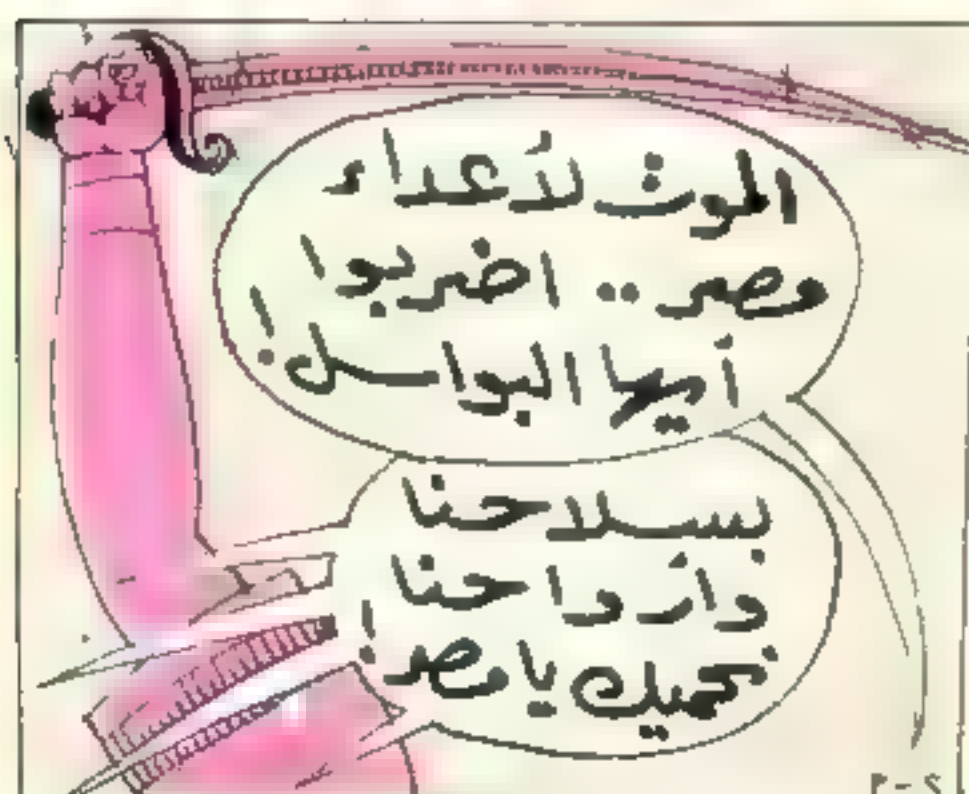 الموت لأعداء
مصر .. اضربوا
أيها البواسل !
بسلاحنا
وأرواحنا
نحميك يا مصر !